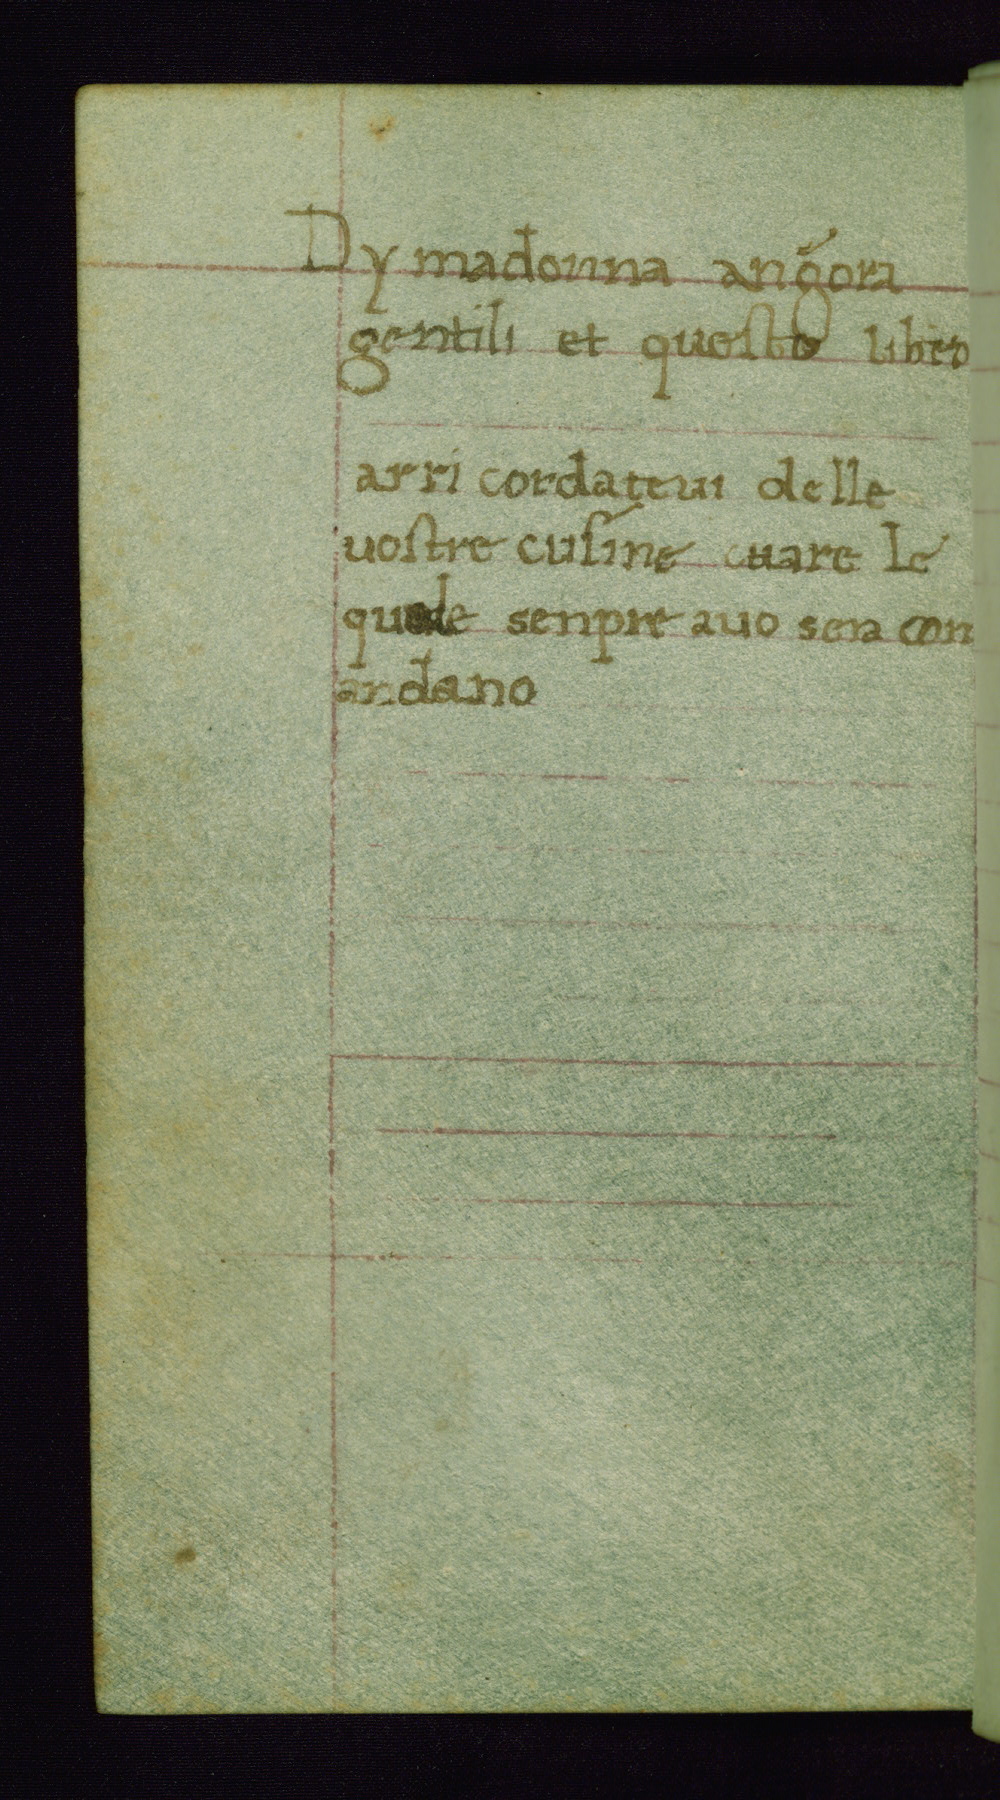 Dy madonna angora
gentili et questo libro
arri cordateui delle
uostre cusine cuare le
quale senpre auo sera con
andano